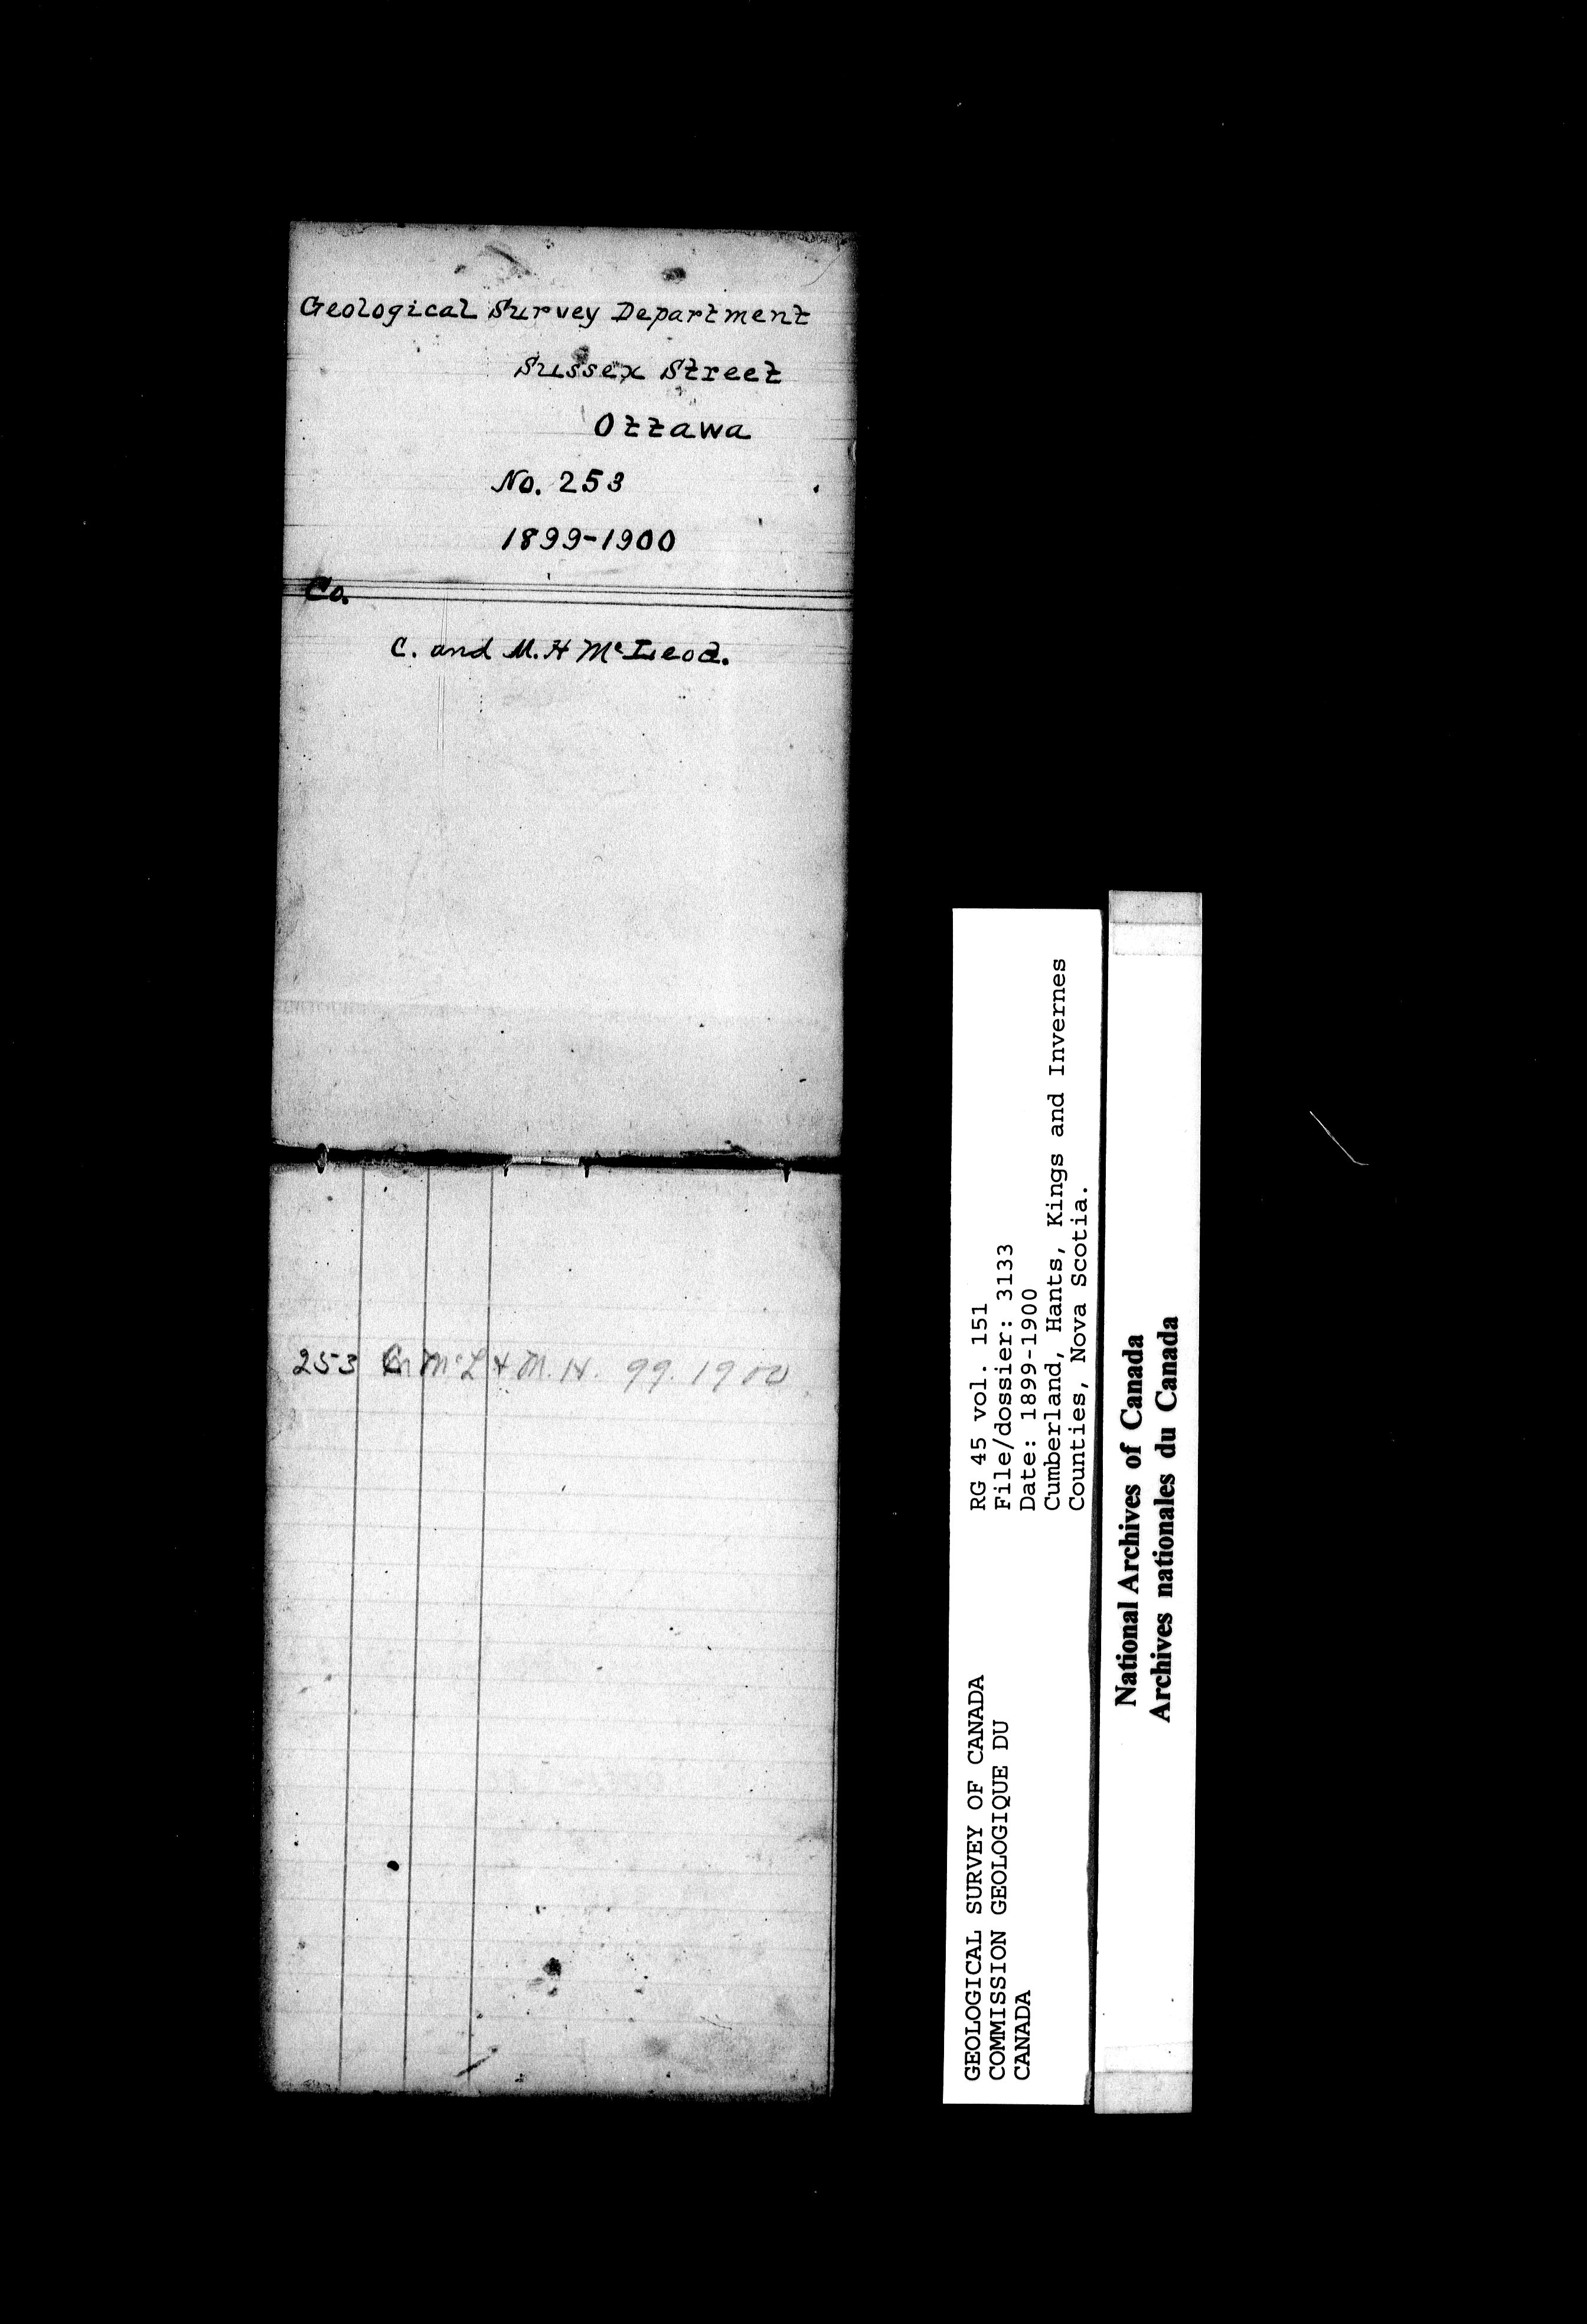 Geological Survey Department
Sussex Street
Ottawa
No. 253
1899-1900
Co.
C. and M. H McLeod.
253 C McL & M. H. 99. 1900
GEOLOGICAL SURVEY OF CANADA
COMMISSION GEOLOGIQUE DU
CANADA
RG 45 vol. 151
File/dossier: 3133
Date: 1899-1900
Cumberland, Hants, Kings and Invernes
Counties, Nova Scotia.
National Archives of Canada
Archives nationales du Canada